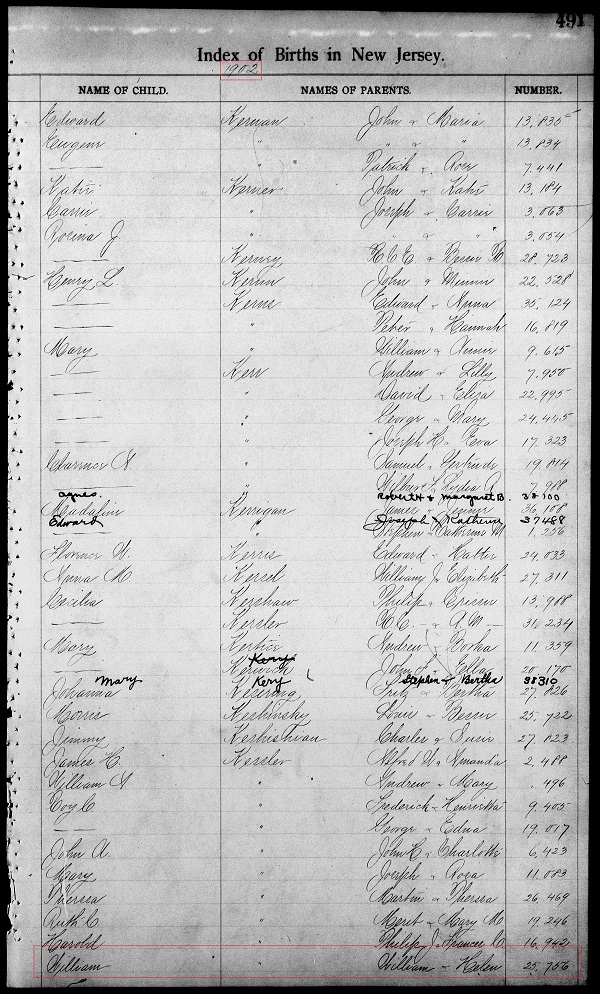 491
Index of Births in New Jersey.
1902
NAME OF CHILD. NAMES OF PARENTS. NUMBER.
Edward Kernan John & Maria 13,835
Eugene " " " 13,834
—— " Patrick & 7,441
Katie Kerner John & Katie 13,184
Carrie " Joseph & Carrie 3,063
Rosina J " " " 3,054
—— Kerney & Bessie B 28,723
Henry L. Kernn John & Minnie 22,528
—— Kerns Edward & Anna 35,124
—— " Peter & Hannah 16,819
Mary " William & Annie 9,615
—— Kerr Andrew & Lilly 7,950
—— " David & Eliza 22,995
—— " George & Mary 24,445
—— " Joseph H. & Eva 17,323
Clarence A " Samuel & Gertrude 19,814
—— " & Lydia A 7,988
Agnes. Robert H & Margaret B. 38100
Madaline Kerrigan James & Jennie 36,108
Edward " Joseph & Katherine 37488
—— Stephen & Catherine M 1,256
Florence W. Kerris Edward & Hattie 24,033
Anna M. Kersel William J & Elizabeth 27,311
Cecilia Kershaw Philip & 13,908
—— Kersler & A. M — 31,234
Mary Kertics Andrew & Borka 11,359
Kery
—— Kerwick John J & 20,170
Mary Kery Stephen & Bertha 38310
Johanna Fritz & Bertha 27,826
Morris Keshinsky Louis & Bessie 25,722
Jimmy Keshishian Charles & Susie 27,823
James H. Kessler Alfred W & Amanda 2,488
William A " Andrew & Mary 496
" Frederick & Henrietta 9,405
—— " George & Edna 19,017
John A. " John H & Charlotte 6,423
Mary " Joseph & Rosa 11,083
Theresa " Martin & Theresa 26,469
Ruth C. " & Mary M 19,246
Harold " Philip J & Frances C. 16,942
William " William & Helen 25,756